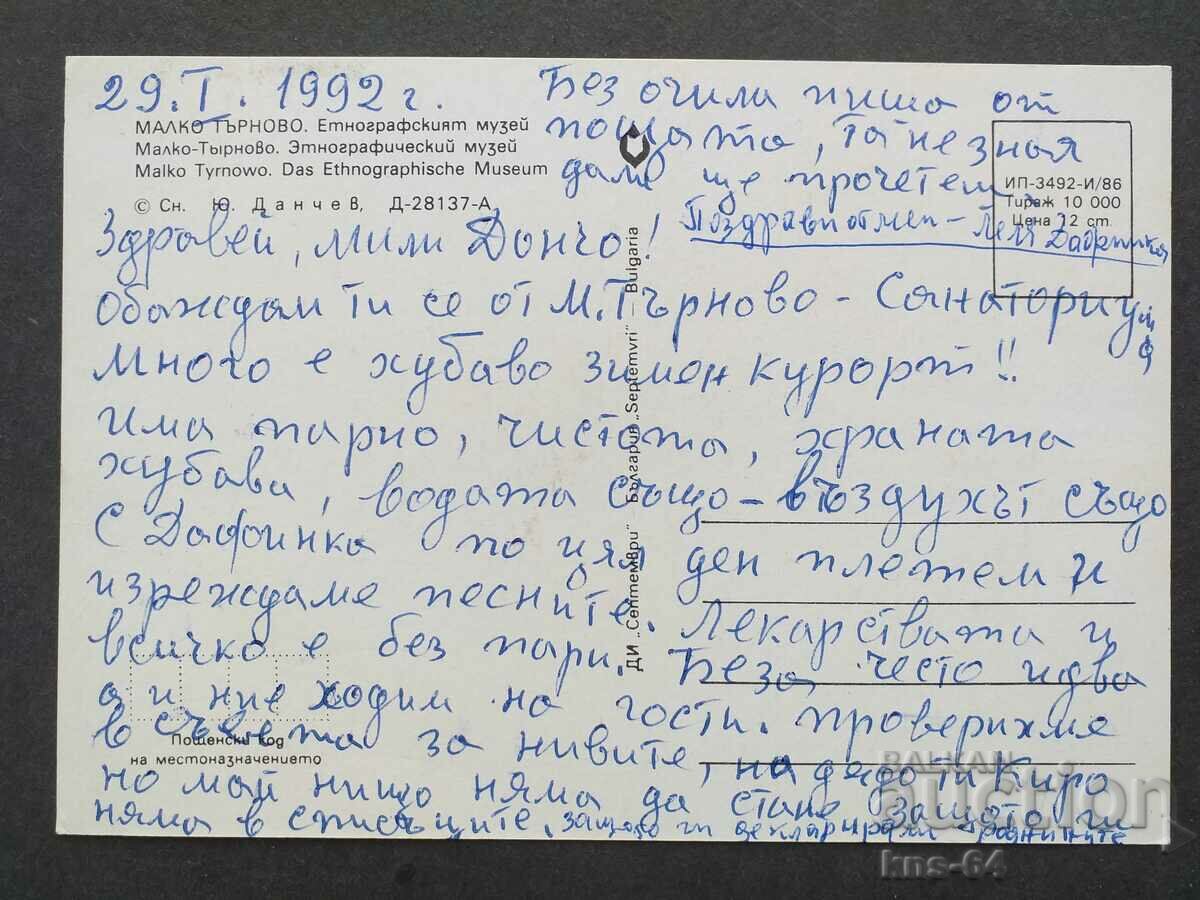 29.I.1992 г.
Без очила пиша от
пощата, та не зная
дали ще прочетеш
МАЛКО ТЪРНОВО. Етнографският музей
Малко-Тырново. Этнографический музей
Malko Tyrnowo. Das Ethnographische Museum
© Сн. Ю. Данчев, Д-28137-А
ИП-3492-И/86
Тираж 10 000
Цена 12 ст.
Поздрави от мен - Леля
Здравей, мили Дончо!
обаждам ти се от М. Търново - Санаториума
Много е хубаво зимен курорт!!
Има парно, чистота, храната
хубава, водата също - въздухът също
С Дафинка по цял ден плетем и
изреждаме песните. Лекарствата и
всичко е без пари. Беза често идва
а и ние ходим на гости. проверихме
в съвета за нивите, на дядо ти Киро
но май нищо няма да стане защото ги
няма в списъците, защото ги декларирали роднините
ДИ „Септември“ България „Septemvri“ — Bulgaria
Пощенски код
на местоназначението
BALKAN
auction
kns-64